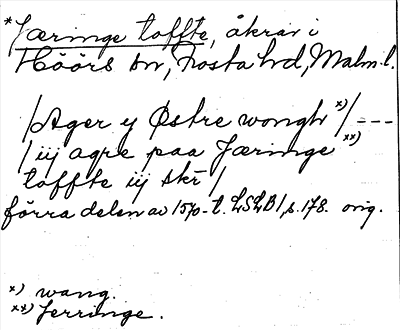 *Jæringe toffte, åkrar i
Höörs sn, Frosta hd, Malm. l.
/Ager y Østre wongh x)/ ---
/ iij agre paa Jæringe xx)
toffte iij skr /
förra delen av 1570-t. LSLB1, s. 178. orig.
x) wang.
xx) Jerringe.